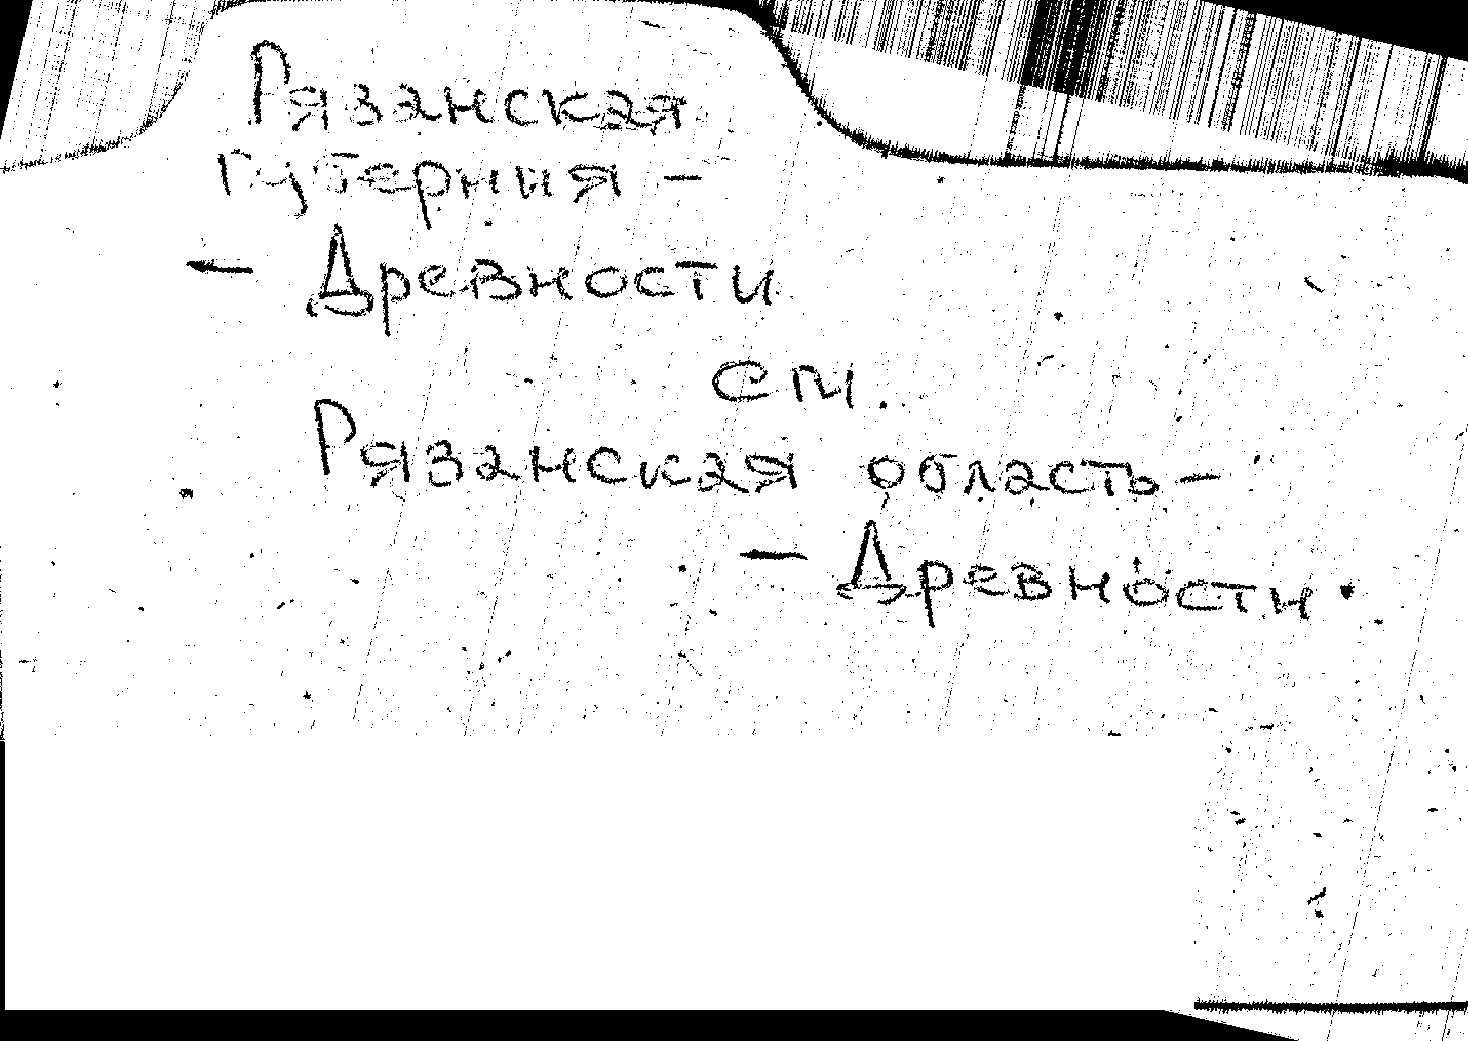 Рязанская
Губерния -
- Древности
см.
Рязанская область -
- Древности.